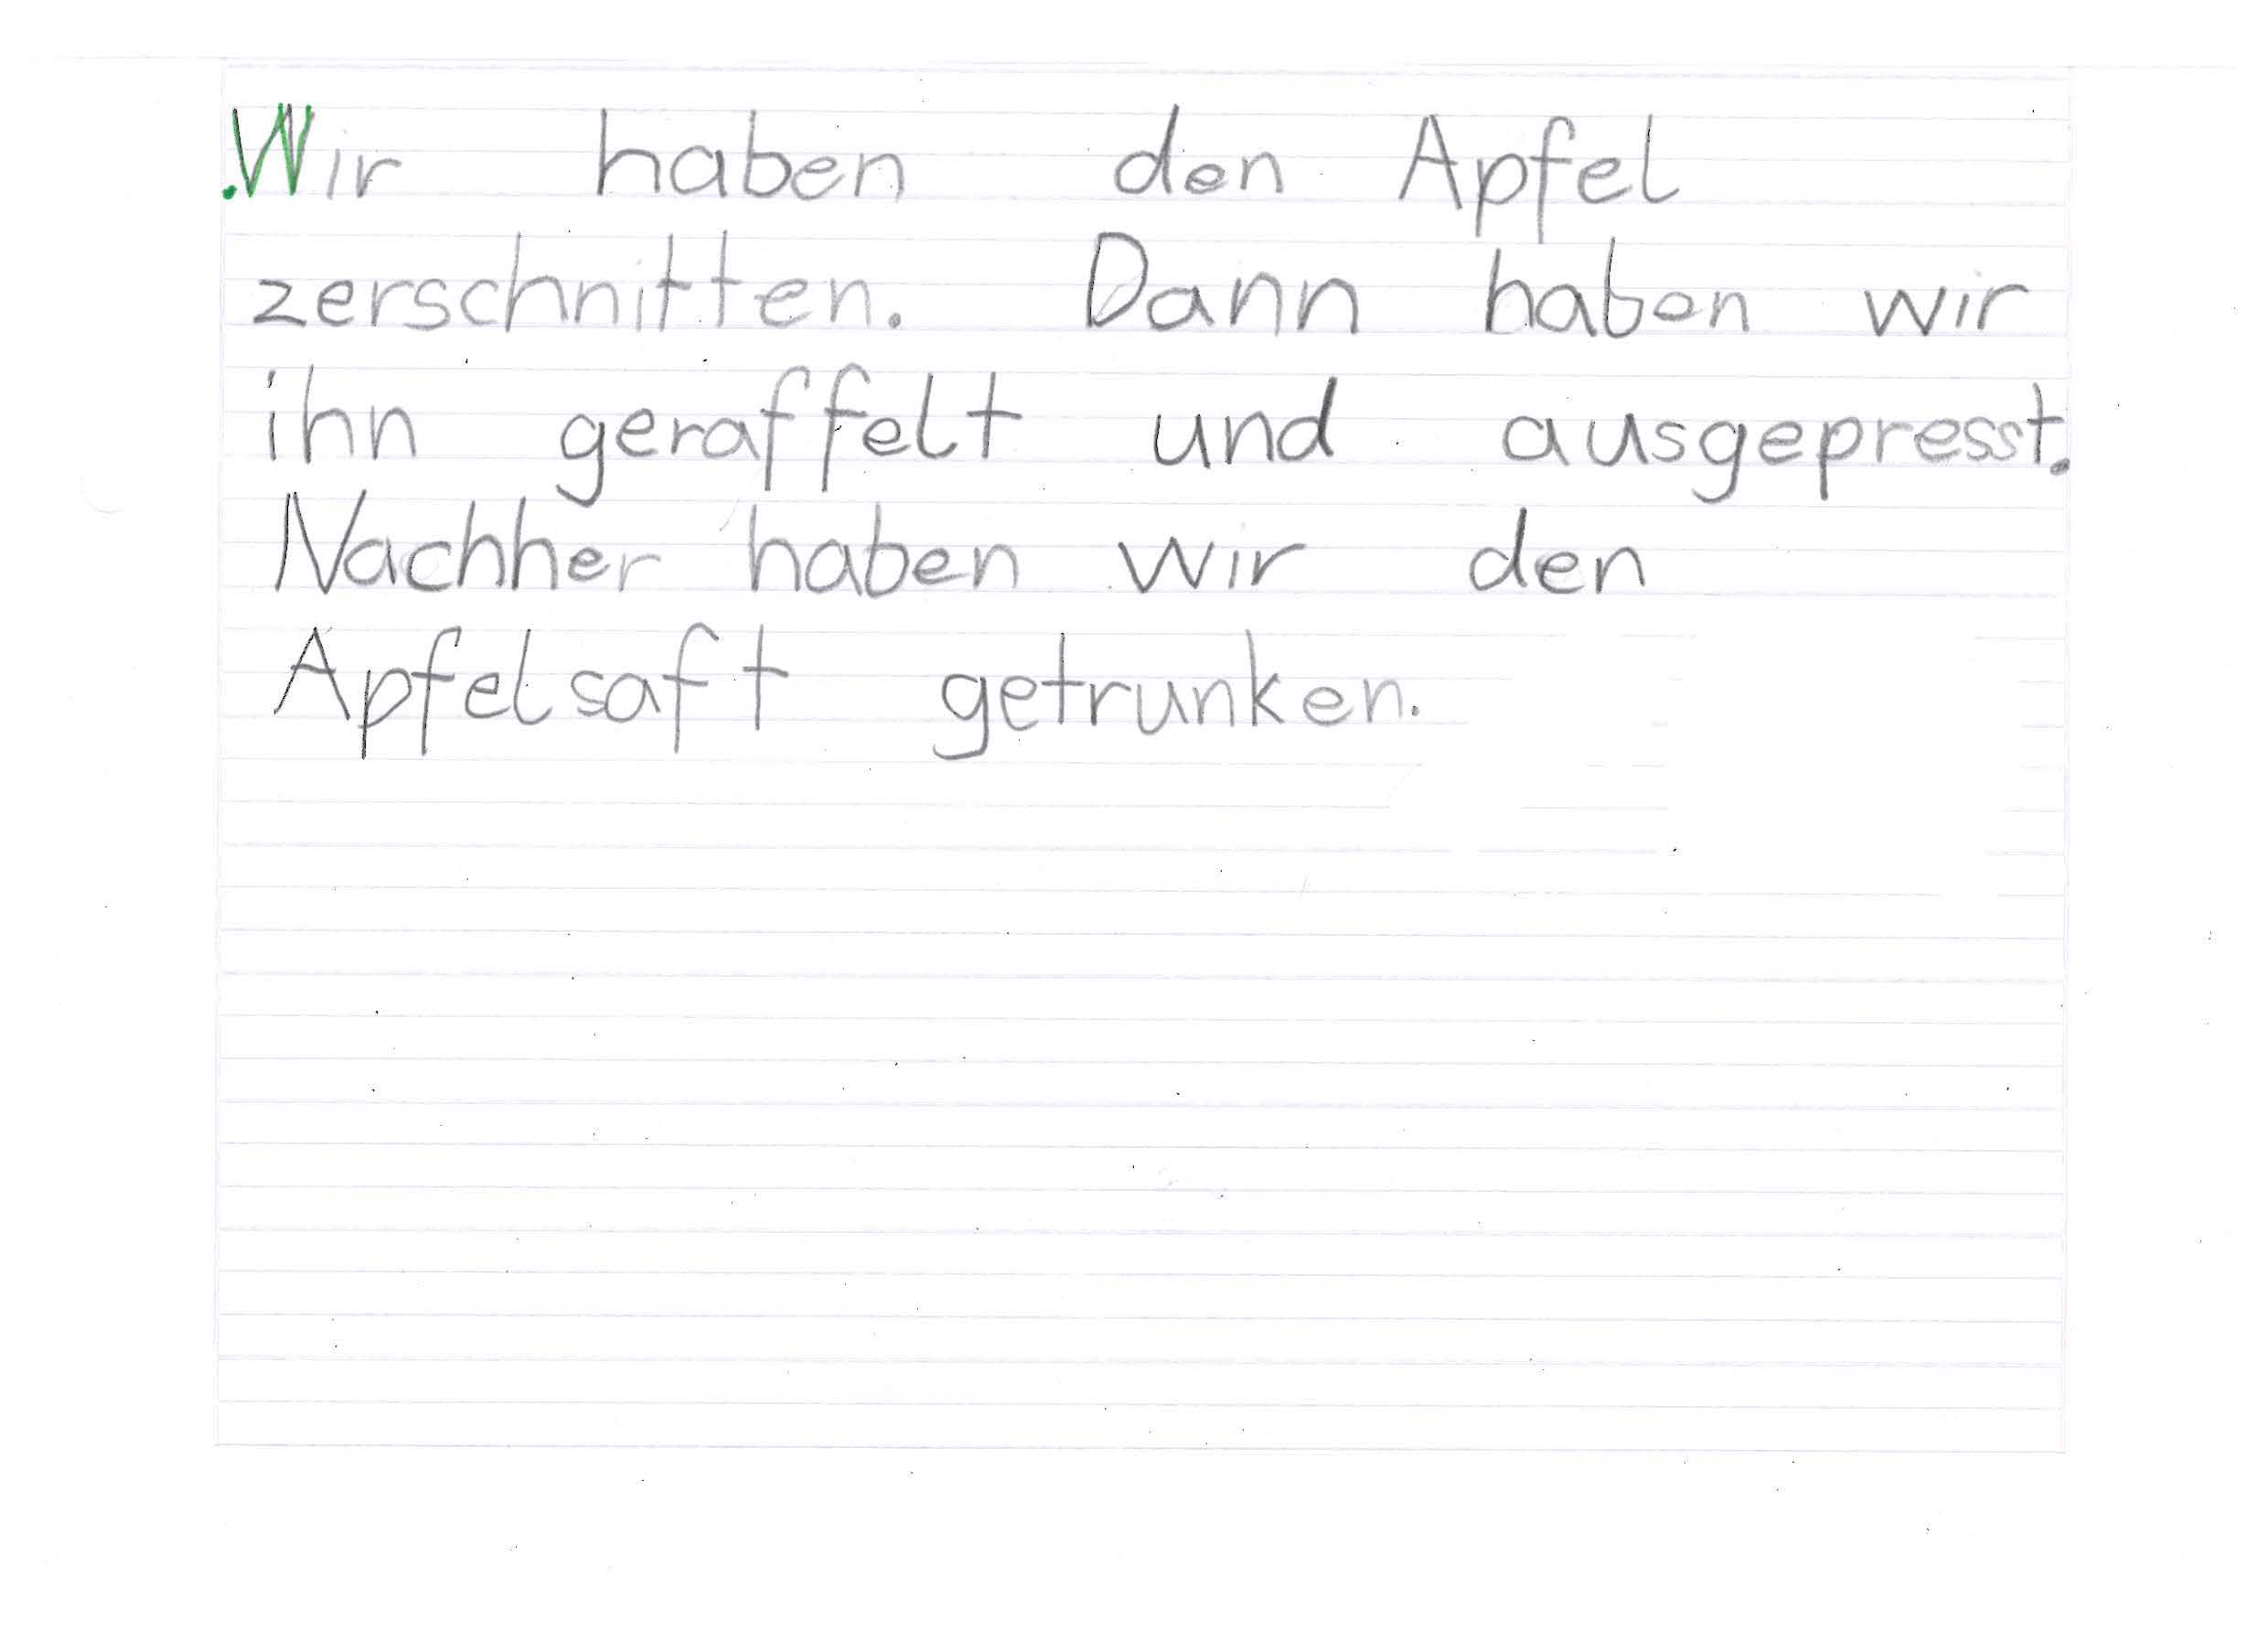 Wir haben den Apfel
zerschnitten. Dann haben wir
ihn geraffelt und ausgepresst.
Nachher haben wir den
Apfelsaft getrunken.